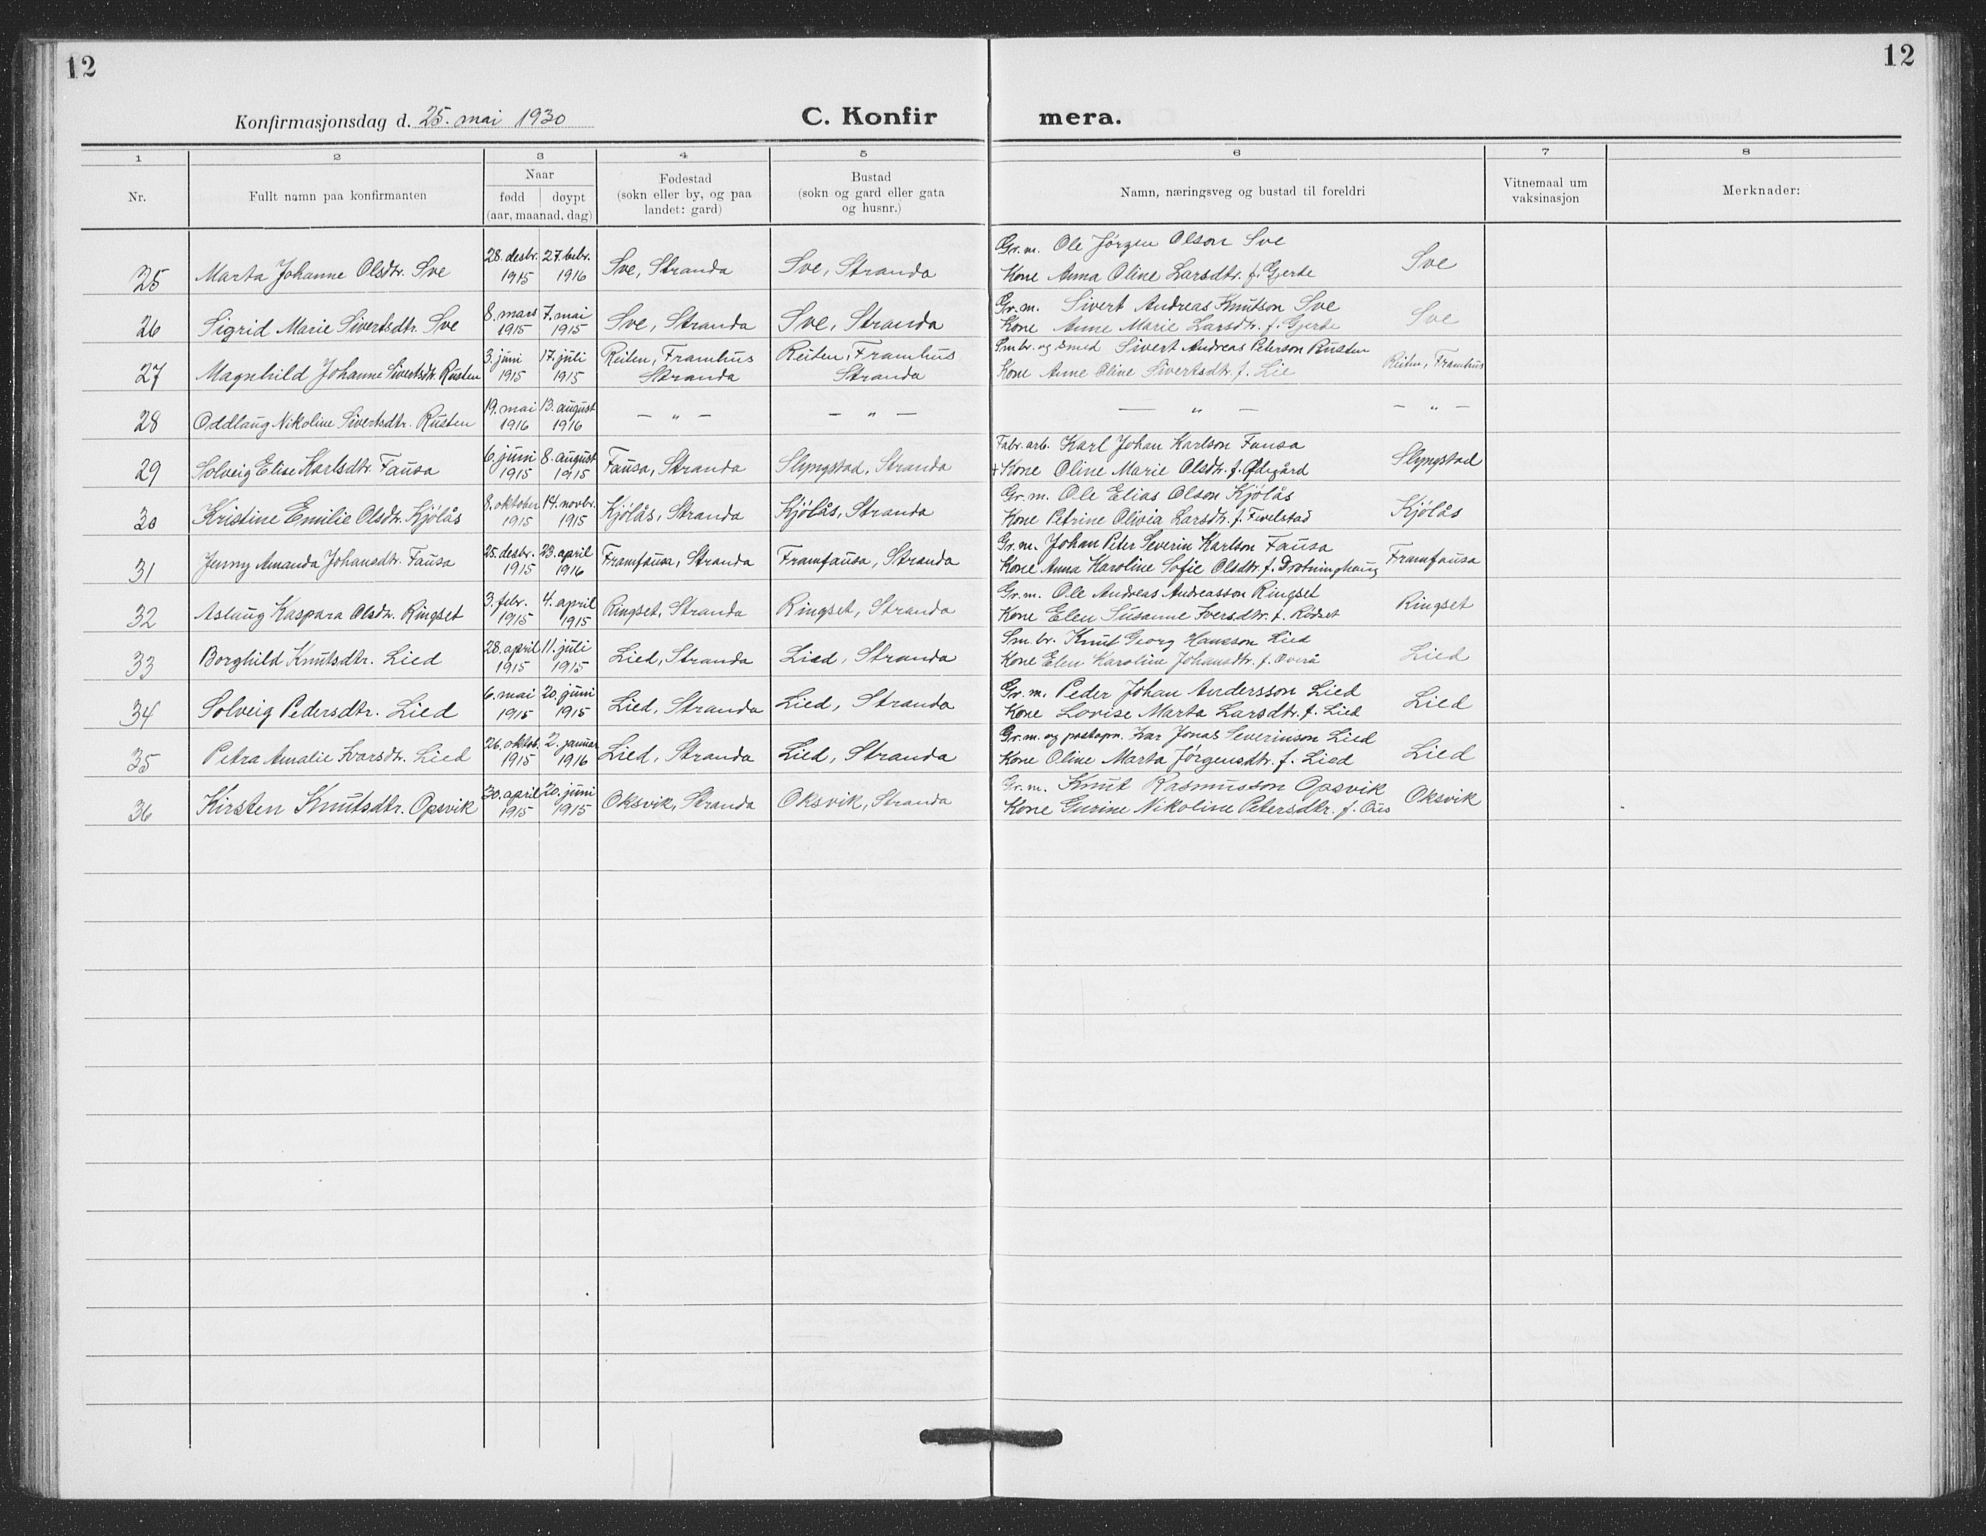 12
12
Konfirmasjonsdag d. 25. mai 1930
C. Konfir mera.
1 2 3 4 5 6 7 8
Nr.
Fullt namn paa konfirmanten
Naar
fødd døypt
(aar, maanad, dag)
Fødestad
(sokn eller by, og paa
landet: gard)
Bustad
(sokn og gard eller gata
og husnr.)
Namn, næringsveg og bustad til foreldri
Vitnemaal um
vaksinasjon
Merknader:
25 Marta Johanne Olsdtr. Sve 28. desbr. 1915 27. febr. 1916 Sve, Stranda Sve, Stranda Gr. m. Ole Jørgen Olson Sve
Kone Anna Oline Larsdtr. f. Gjerde Sve
26 Sigrid Marie Sivertsdtr. Sve 8. mars 1915 7. mai 1915 Sve, Stranda Sve, Stranda Gr. m. Sivert Andreas Knutson Sve
Kone Anne Marie Larsdtr. f. Gjerde Sve
27 Magnhild Johanne Sivertsdtr. Rusten 3. juni 1915 17. juli 1915 Reiten, Framhus Stranda Reiten, Framhus Stranda Sm br. og smed Sivert Andreas Peterson Rusten
Kone Anne Oline Sivertsdtr. f. Lie Reiten, Framhus
28 Oddlaug Nikoline Sivertsdtr. Rusten 19. mai 1916 13. august 1916 — " — — " — — " — — " —
29 Solveig Elise Karlsdtr. Fausa 6. juni 1915 8. august 1915 Fausa, Stranda Slyngstad, Stranda Fabr. arb. Karl Johan Karlson Fausa
+ Kone Oline Marie Olsdtr. f. Ødegård Slyngstad
30 Kristine Emilie Olsdtr. Kjølås 8. oktober 1915 14. novbr. 1915 Kjølås, Stranda Kjølås, Stranda Gr. m. Ole Elias Olson Kjølås
Kone Petrine Olivia Larsdtr. f. Fivelstad Kjølås
31 Jenny Amanda Johansdtr. Fausa 25. desbr. 1915 23. april 1916 Framfausa, Stranda Framfausa, Stranda Gr. m. Johan Peter Severin Karlson Fausa
Kone Anna Karoline Sofie Olsdtr. f. Drotninghaug Framfausa
32 Aslaug Kaspara Olsdtr. Ringset 3. febr. 1915 4. april 1915 Ringset, Stranda Ringset, Stranda Gr. m. Ole Andreas Andreasson Ringset
Kone Elen Susanne Iversdtr. f. Rødset Ringset
33 Borghild Knutsdtr. Lied 28. april 1915 11. juli 1915 Lied, Stranda Lied, Stranda Sm. br. Knut Georg Hansson Lied
Kone Elen Karoline Johansdtr. f. Overå Lied
34 Solveig Pedersdtr. Lied 6. mai 1915 20. juni 1915 Lied, Stranda Lied, Stranda Gr. m. Peder Johan Andersson Lied
Kone Lovise Marta Larsdtr. f. Lied Lied
35 Petra Amalie Ivarsdtr. Lied 26. oktob. 1915 2. januar 1916 Lied, Stranda Lied, Stranda Gr. m. og postopn. Ivar Jonas Severinson Lied
Kone Oline Marta Jørgensdtr. f. Lied Lied
36 Kirsten Knutsdtr. Opsvik 30. april 1915 20. juni 1915 Oksvik, Stranda Oksvik, Stranda Gr. m. Knut Rasmusson Opsvik
Kone Gurine Nikoline Petersdtr. f. Oksvik